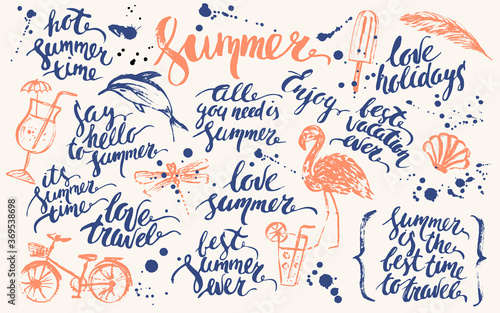 hot
summer
time
summer
love
holidays
say
hello
to
summer
all
you need is
summer
Enjoy
best
vacation
ever
its
summer
time
love
travel
love
summer
best
summer
ever
summer
is the
best time
to
travel
Adobe Stock | #369538698